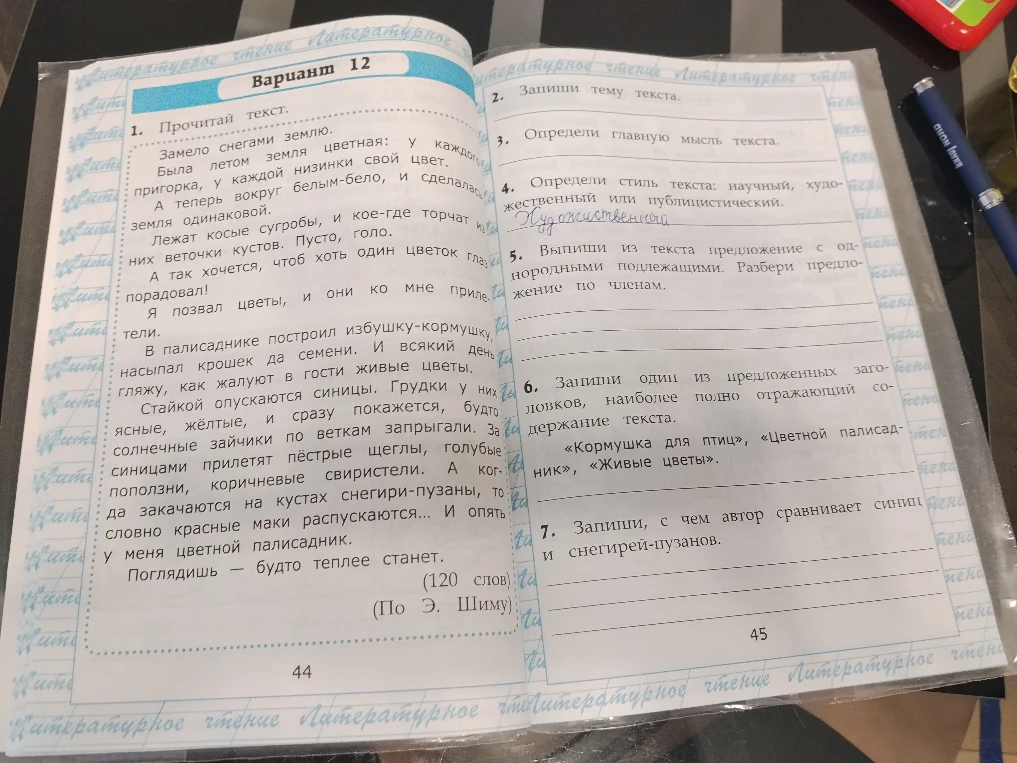 Литературное чтение Литературное чте
Вариант 12
1. Прочитай текст.
Замело снегами землю.
Была летом земля цветная: у каждого
пригорка, у каждой низинки свой цвет.
А теперь вокруг белым-бело, и сделалась
земля одинаковой.
Лежат косые сугробы, и кое-где торчат из
них веточки кустов. Пусто, голо.
А так хочется, чтоб хоть один цветок глаз
порадовал!
Я позвал цветы, и они ко мне приле-
тели.
В палисаднике построил избушку-кормушку,
насыпал крошек да семени. И всякий день
гляжу, как жалуют в гости живые цветы.
Стайкой опускаются синицы. Грудки у них
ясные, жёлтые, и сразу покажется, будто
солнечные зайчики по веткам запрыгали. За
синицами прилетят пёстрые щеглы, голубые
поползни, коричневые свиристели. А ког-
да закачаются на кустах снегири-пузаны, то
словно красные маки распускаются... И опять
у меня цветной палисадник.
Поглядишь — будто теплее станет.
(120 слов)
(По Э. Шиму)
44
Литературное чтение Литературное чте
Литературное чтение Литературное чтение
2. Запиши тему текста.
3. Определи главную мысль текста.
4. Определи стиль текста: научный, худо-
жественный или публицистический.
Художиственный
5. Выпиши из текста предложение с од-
нородными подлежащими. Разбери предло-
жение по членам.
6. Запиши один из предложенных заго-
ловков, наиболее полно отражающий со-
держание текста.
«Кормушка для птиц», «Цветной палисад-
ник», «Живые цветы».
7. Запиши, с чем автор сравнивает синиц
и снегирей-пузанов.
45
Литературное чтение Литературное чтение